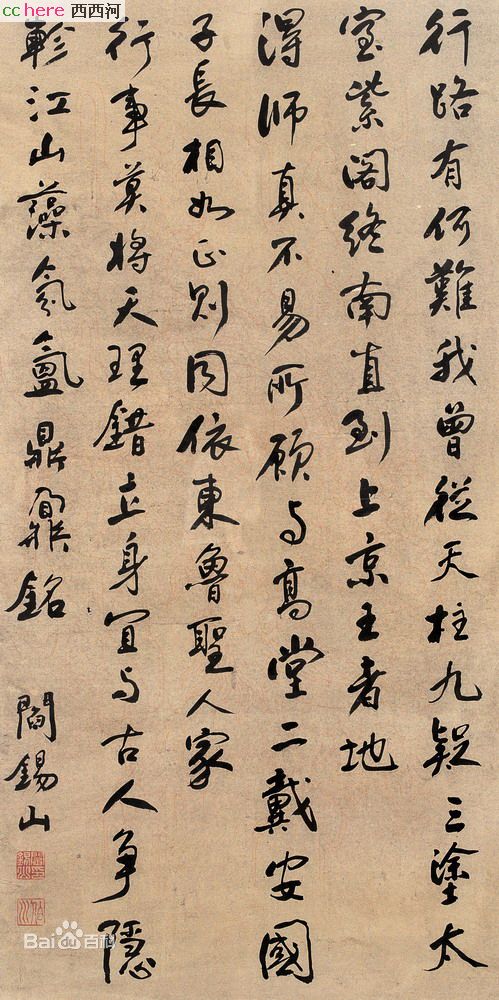 cchere 西西河
行路有何難我曾從天柱九疑三塗太
室紫閣終南直到上京王者地
得師真不易所願与高堂二戴安國
子長相如正則同依東魯聖人家
行事莫將天理錯立身宜与古人爭隱
軫江山藻氛氳鼎鼐銘
閻錫山
Bai百科